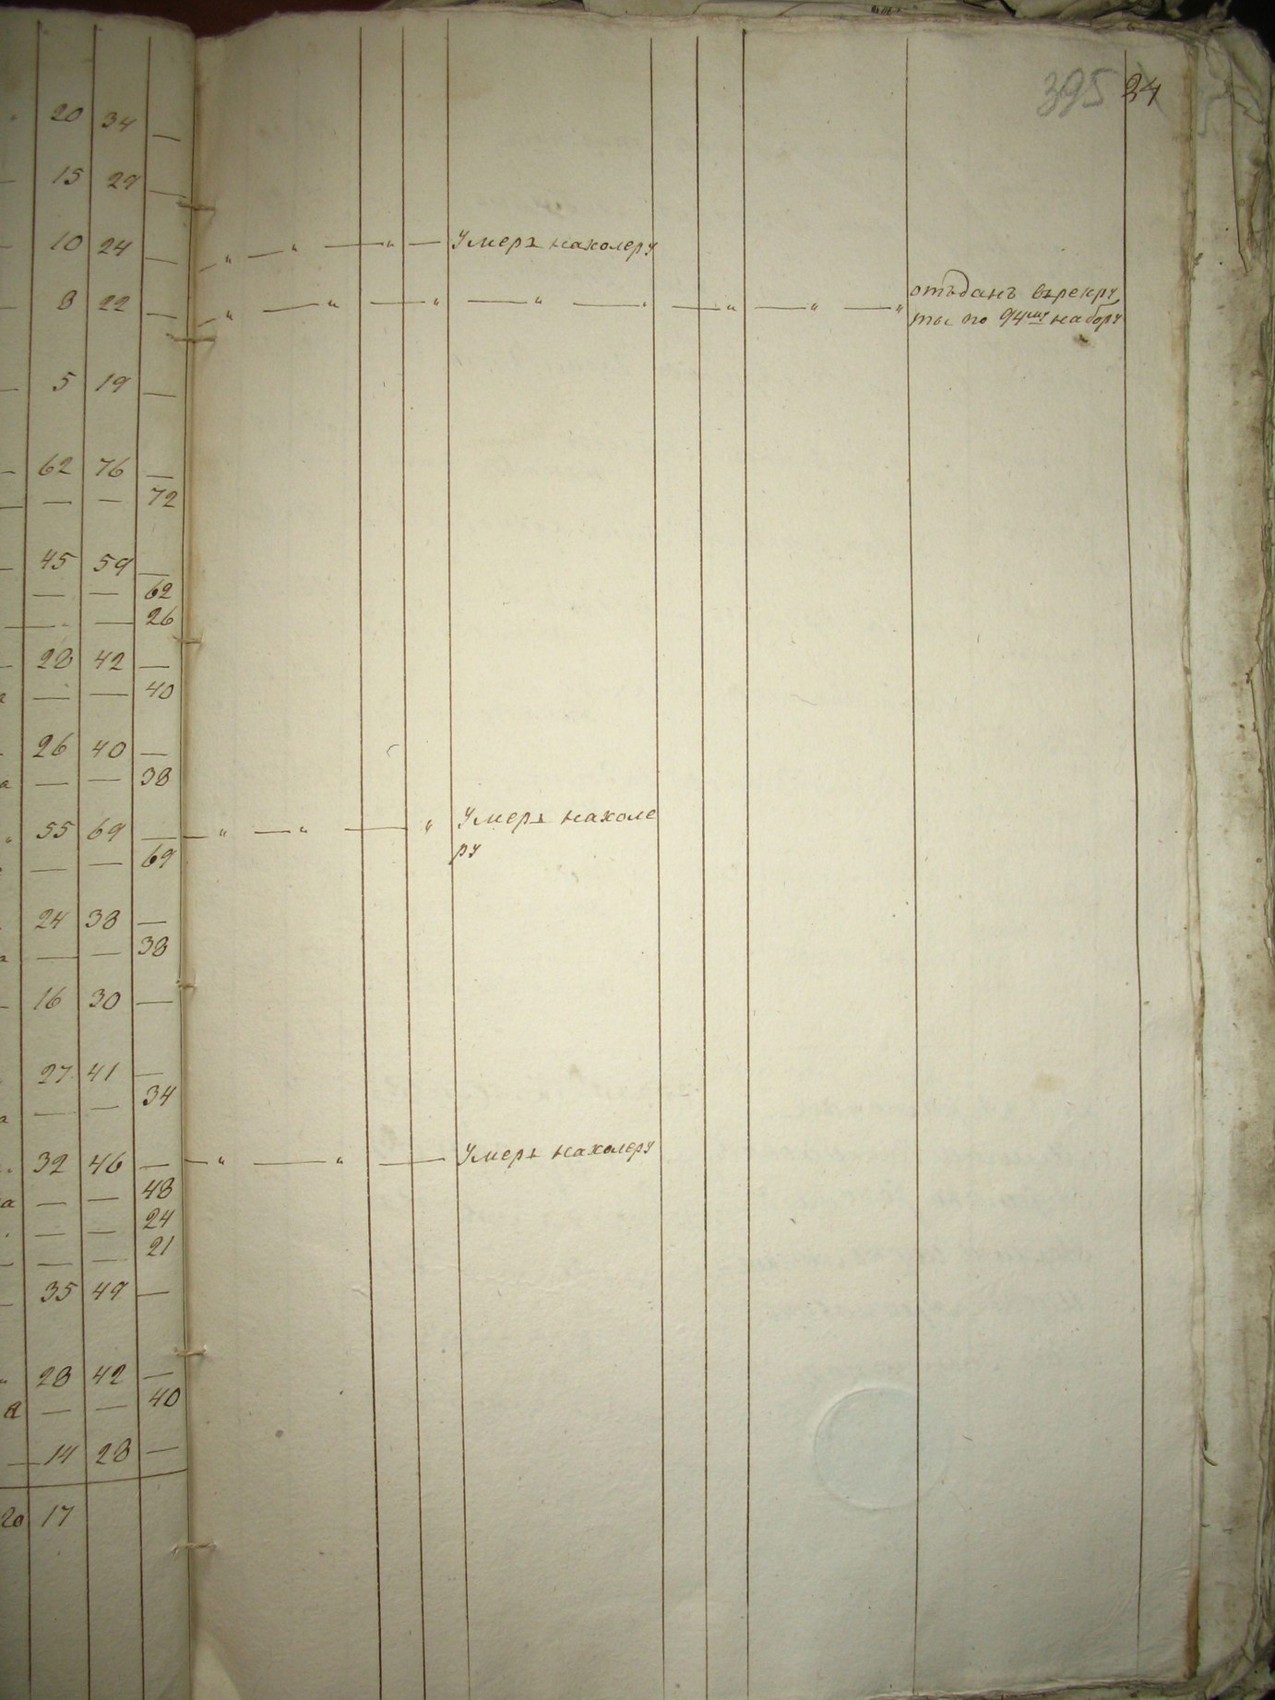 395 24
20 34 —
15 29 —
10 24 — „ — „ — „ — Умеръ нахолеру
8 22 — „ — „ — „ — „ — „ — „ — „ отъданъ врекру
ты по 94му набору
5 19 —
62 76 —
— — 72
45 59 —
— — 62
— — 26
28 42 —
— — 40
26 40 —
а — — 38
55 69 — „ — „ — „ Умеръ нахоле
ру
— — 69
24 38 —
а — — 38
16 30 —
27 41 —
а — — 34
32 46 — „ — „ — Умеръ нахолеру
а — — 48
— — 24
— — 21
35 49 —
28 42 —
а — — 40
14 28 —
20 17